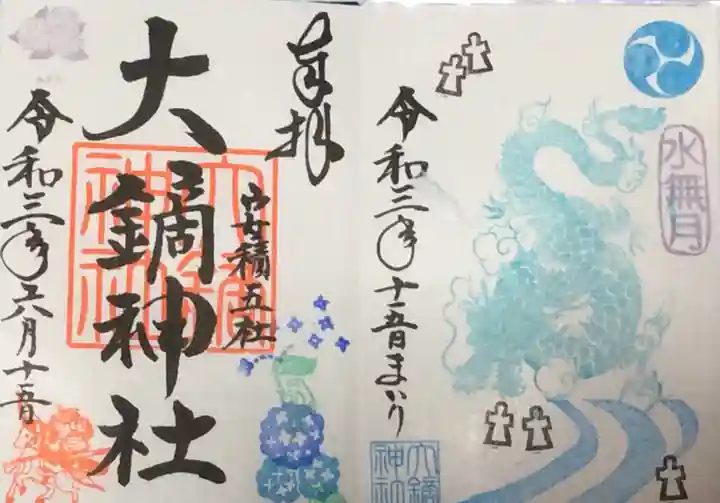 水無月
令和三年十五日まいり
大鏑
神社
奉拝
安積五社
大鏑神社
大鏑
神社
令和三年六月十五日